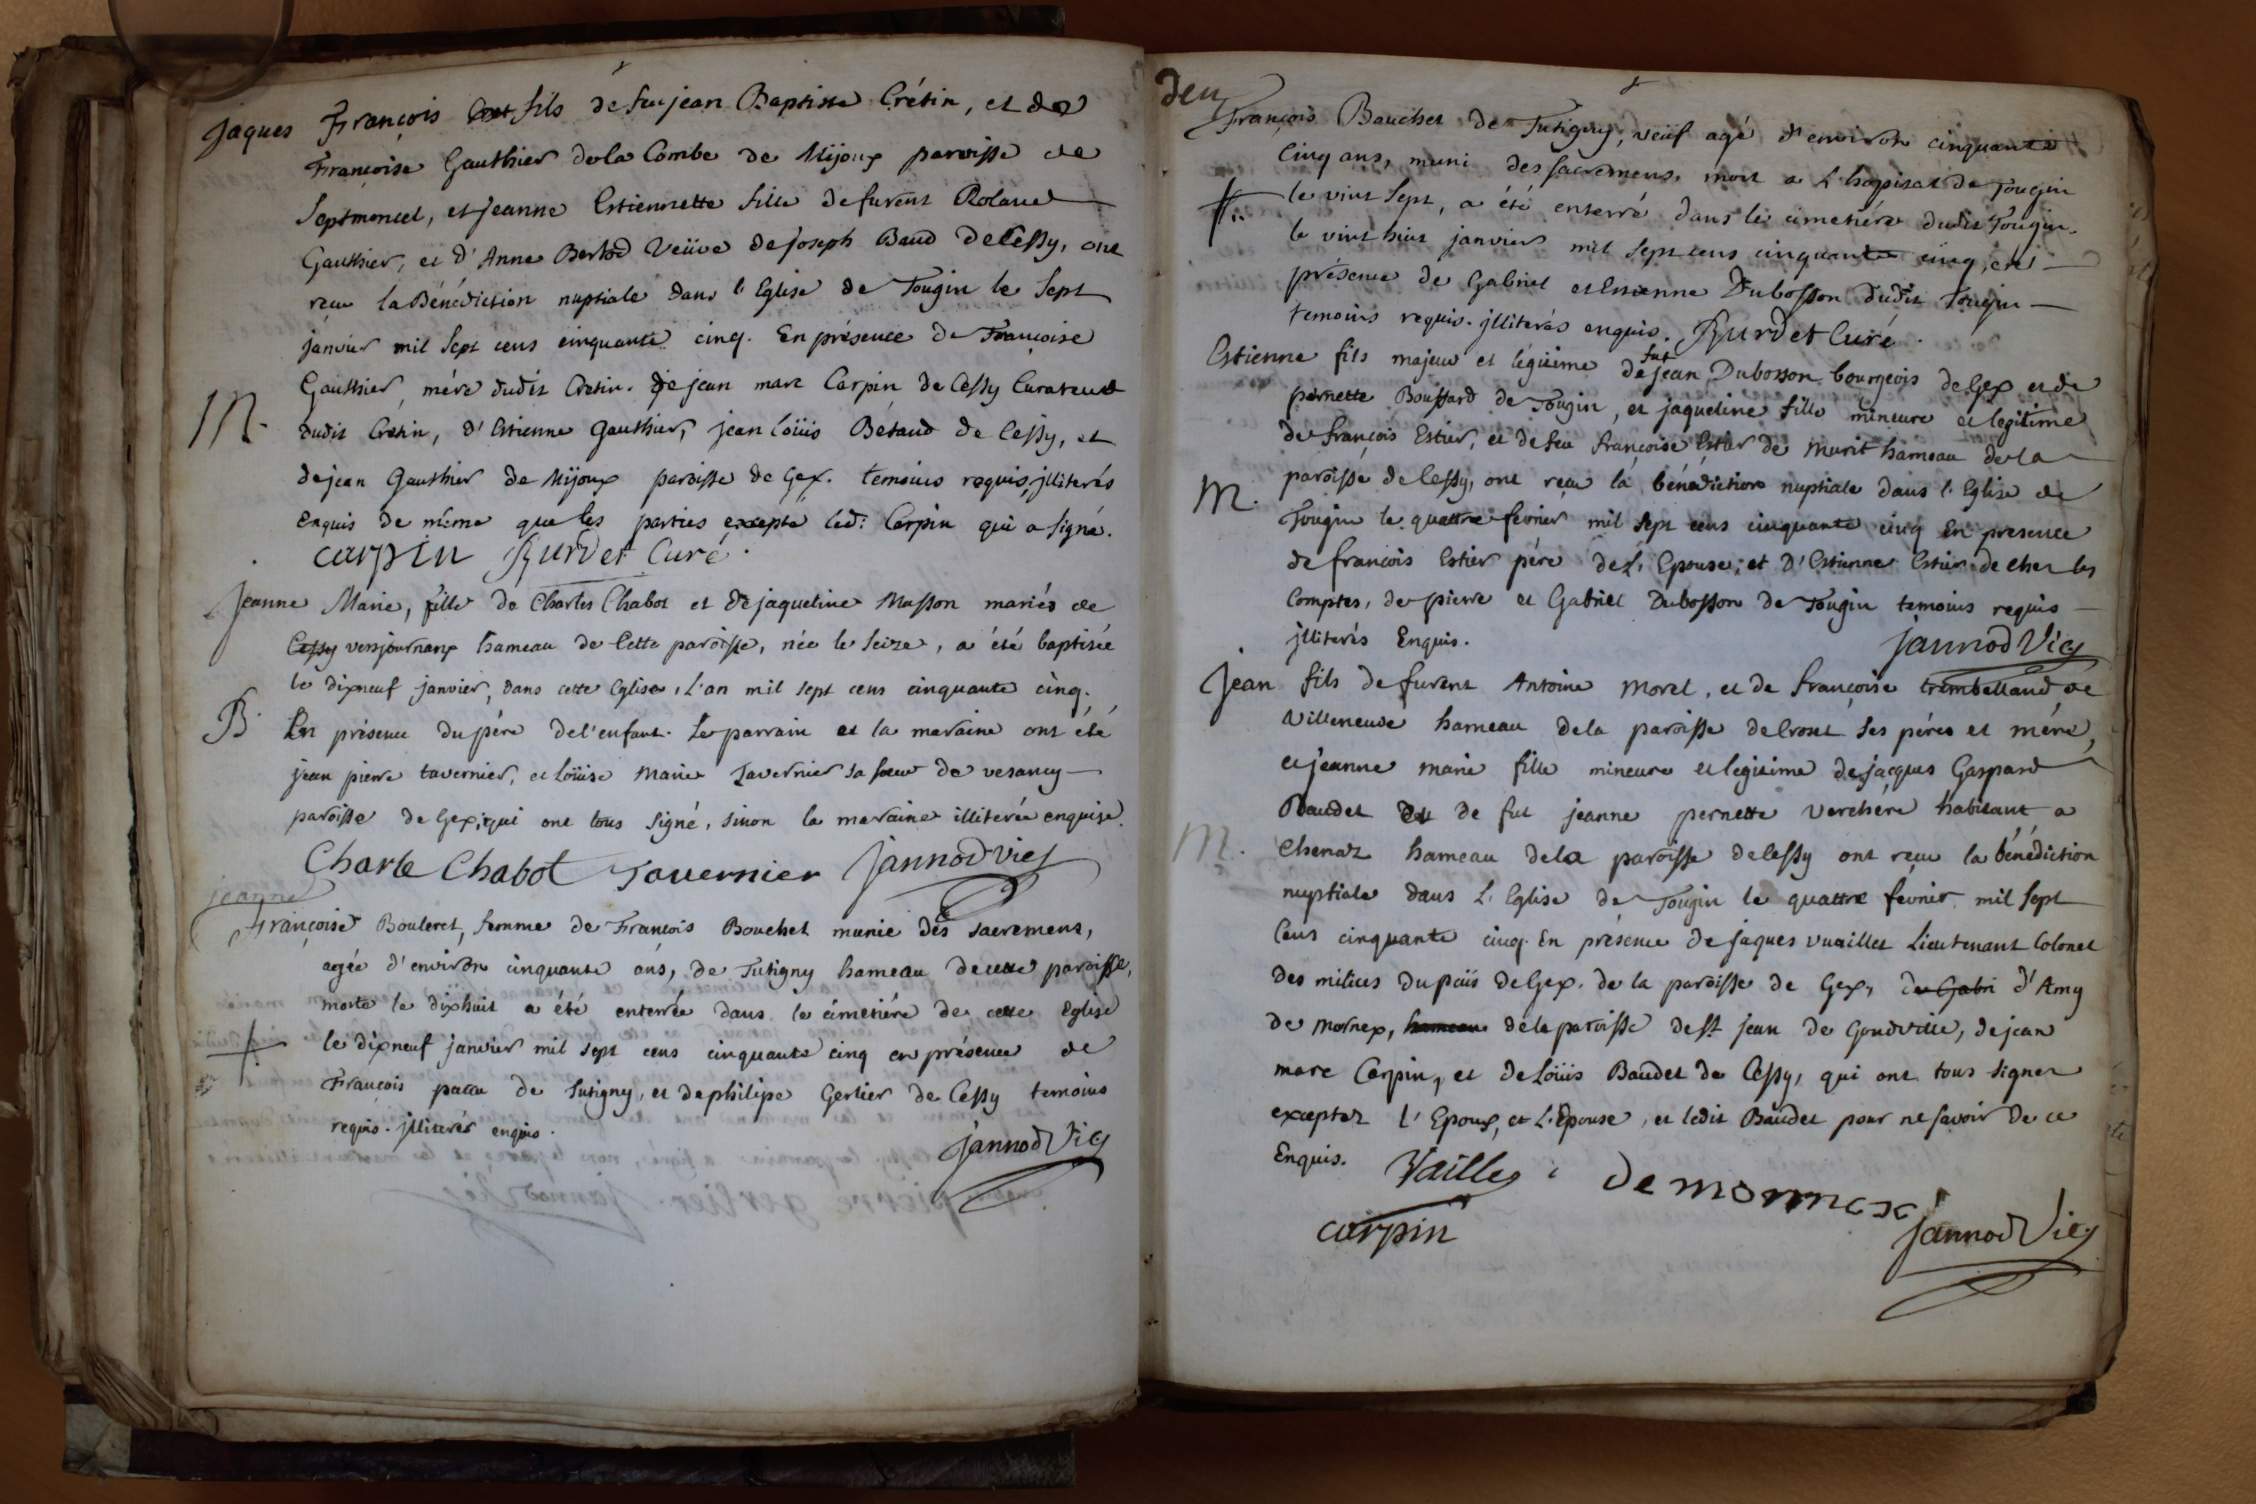 Jaques François fils de feu jean Baptiste Crétin, et de
Françoise Gauthier dela Combe de Mijoux paroisse de
Septmoncel, et jeanne Estiennette fille defurent Roland
Gauthier, et d'Anne Bertod Veüve de joseph Baud deCessy, ont
recu laBénédiction nuptiale dans l'Eglise de Tougin le Sept
janvier mil Sept cens cinquante cinq. En présence de Françoise
Gauthier, mére dudit Cretin. de jean marc Carpin de Cessy Curateur
M.
dudit Crétin, d'Estienne Gauthier, jean Loüis Bétaud de Cessy, et
dejean Gauthier de Mijoux paroisse de Gex. temoins requis, jlliterés
enquis de même que les parties excepté led: Carpin qui a signé.
carpin Burdet Curé.
Jeanne Marie, fille de Charles Chabot et de jaqueline Masson mariés de
Cessy versjournanx hameau de Cette paroisse, née le seize, a été baptisée
le dixneuf janvier, dans cette Eglise, L'an mil sept cens cinquante cinq.
B.
En présence du pére del'enfant. Le parrain et la maraine ont été
jean pierre tavernier, et Loüise Marie Tavernier sa soeur de vesancy
paroisse de Gex, qui ont tous signé, sinon la maraine illiterée enquise.
Charle Chabot Tavernier jannod vic
jeanne
Françoise Bouleret, femme de Francois Bouchet munie des sacremens,
agée d'environ cinquante ans, de Tutigny hameau decette paroisse,
morte le dixhuit a été enterrée dans le cimetiére de cette Eglise
le dixneuf janvier mil sept cens cinquante cinq en présence de
François de Tutigny, et dephilipe Gerlier de Cessy temoins
requis. jlliterés enquis.
jannod Vic
deu
François Bauchet de Tutigny, veüf agé d'environ cinquante
Cinq ans, muni des sacremens. mort a L'hopital de Tougin
le vint sept, a été enterré dans le cimetiére dudit Tougin.
le vint huit janvier mil sept cens cinquante cinq, en
présence de Gabriel et Estienne Dubosson dudit Tougin
temoins requis. jlliterés enquis. Burdet Curé.
Estienne fils majeur et légitime de fut jean Dubosson bourgeois deGex et de
pernette Boussard de Tougin, et jaqueline fille mineure et legitime
de françois Estier, et de feu françoise Estier de Murit hameau dela
paroisse de Cessy, ont reçu la bénédiction nuptiale dans l'Eglise de
M.
Tougin le quattre fevrier mil sept cens cinquante cinq En presence
de francois Estier pére deL'Epouse, et d'Estienne Estier de chez les
Comptes, de pierre et Gabriel Dubosson de Tougin temoins requis
jlliterés Enquis. jannod Vic
Jean fils de furent Antoine Morel, et de françoise trembelland de
Villeneuve hameau dela paroisse deCrozet ses péres et mére,
et jeanne marie fille mineure et legitime de jacques Gaspard
Baudet de fut jeanne pernette Verchére habitant a
M.
Chenaz hameau dela paroisse deCessy ont reçu la bénédiction
nuptiale dans L'Eglise de Tougin le quattre février mil sept
Cens cinquante cinq. En présence de jaques vuaillet Lieutenant Colonel
des milices dupaïs deGex. de la paroisse de Gex, de Gabri d'Amy
de Mornex, hameau dela paroisse deSt jean de Gondville, dejean
marc Carpin, et deLoüis Baudet de Cessy, qui ont tous signer
exceptez l'Epoux, et L'Epouse, et ledit Baudet pour ne savoir de ce
Enquis. Vaillet de mornex
carpin jannod Vic